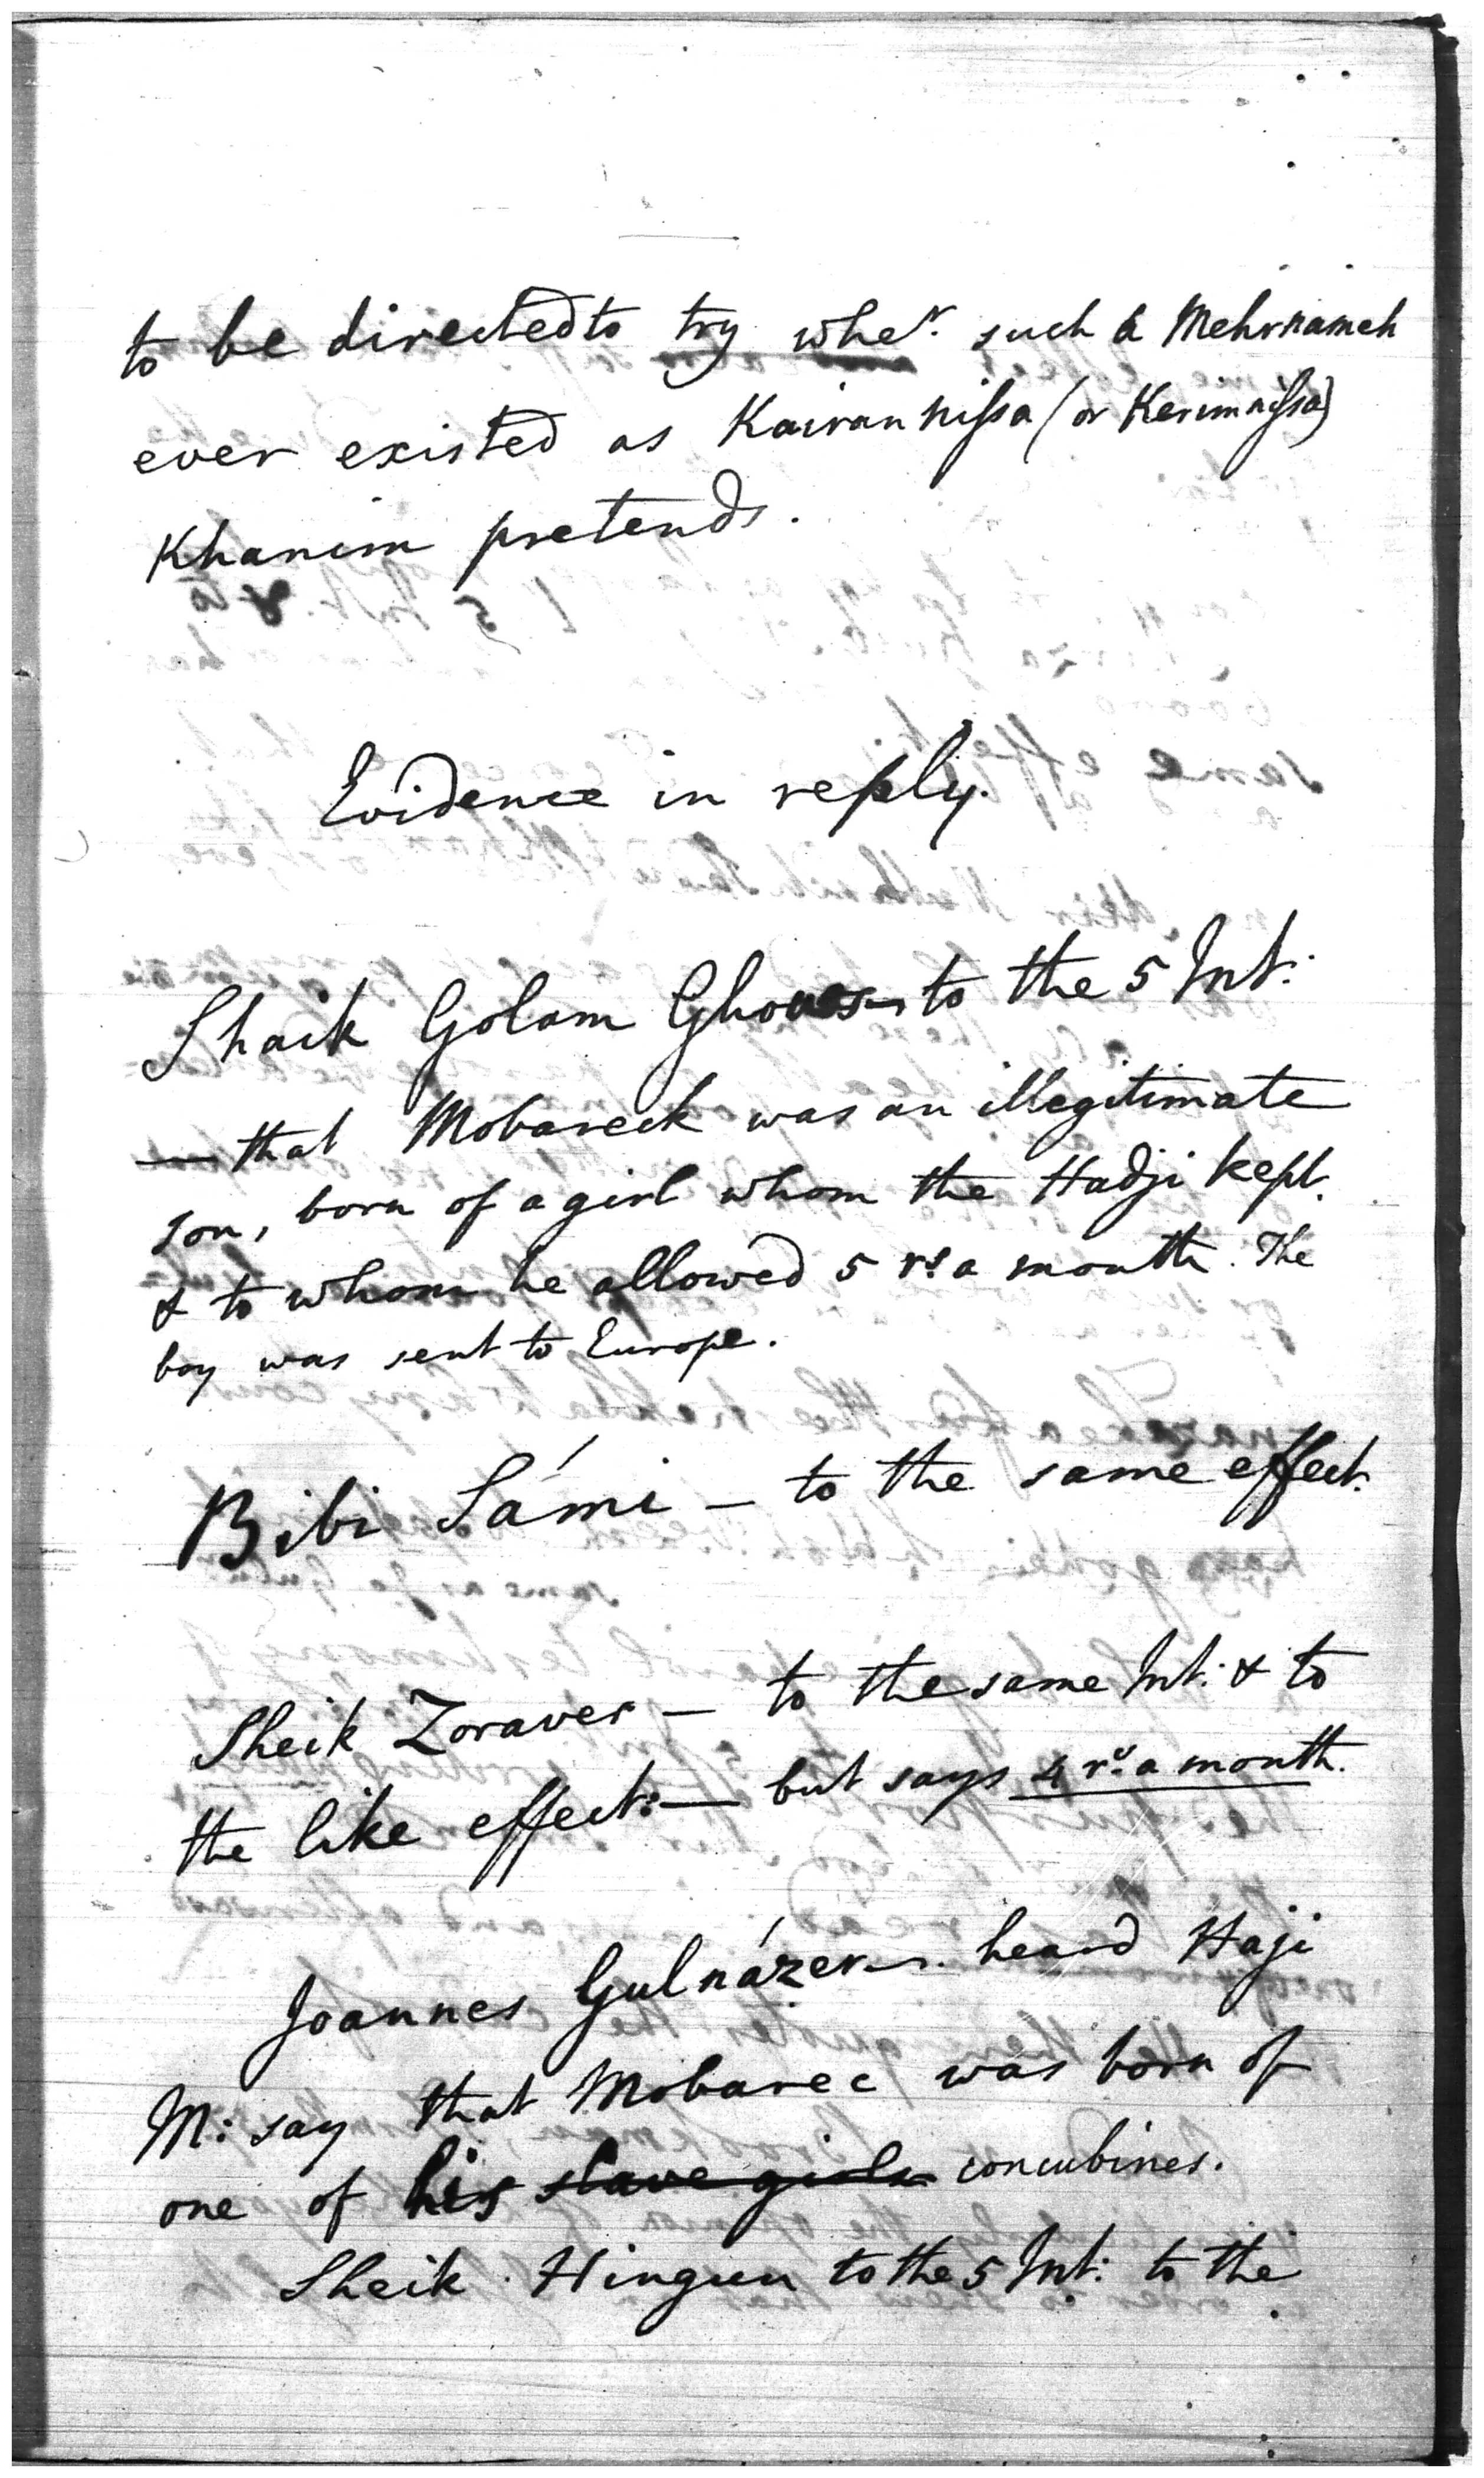 to be directed to try whe^r. such a Mehrnameh
ever existed as Kairannissa (or Kerimnissa)
Khanim pretends.
Evidence in reply.
Shaik Golam Ghoues — to the 5 Int:
— that Mobareck was an illegitimate
son, born of a girl whom the Hadji kept.
& to whom he allowed 5 r^s. a month. The
boy was sent to Europe.
Bibi Sámi — to the same effect.
Sheik Zoraver — to the same Int: & to
the like effect: — but says 4 r^s. a month.
Joannes Gulnázer —. heard Haji
M: say that Mobarec was born of
one of his slave girls concubines.
Sheik Hingun to the 5 Int: to the